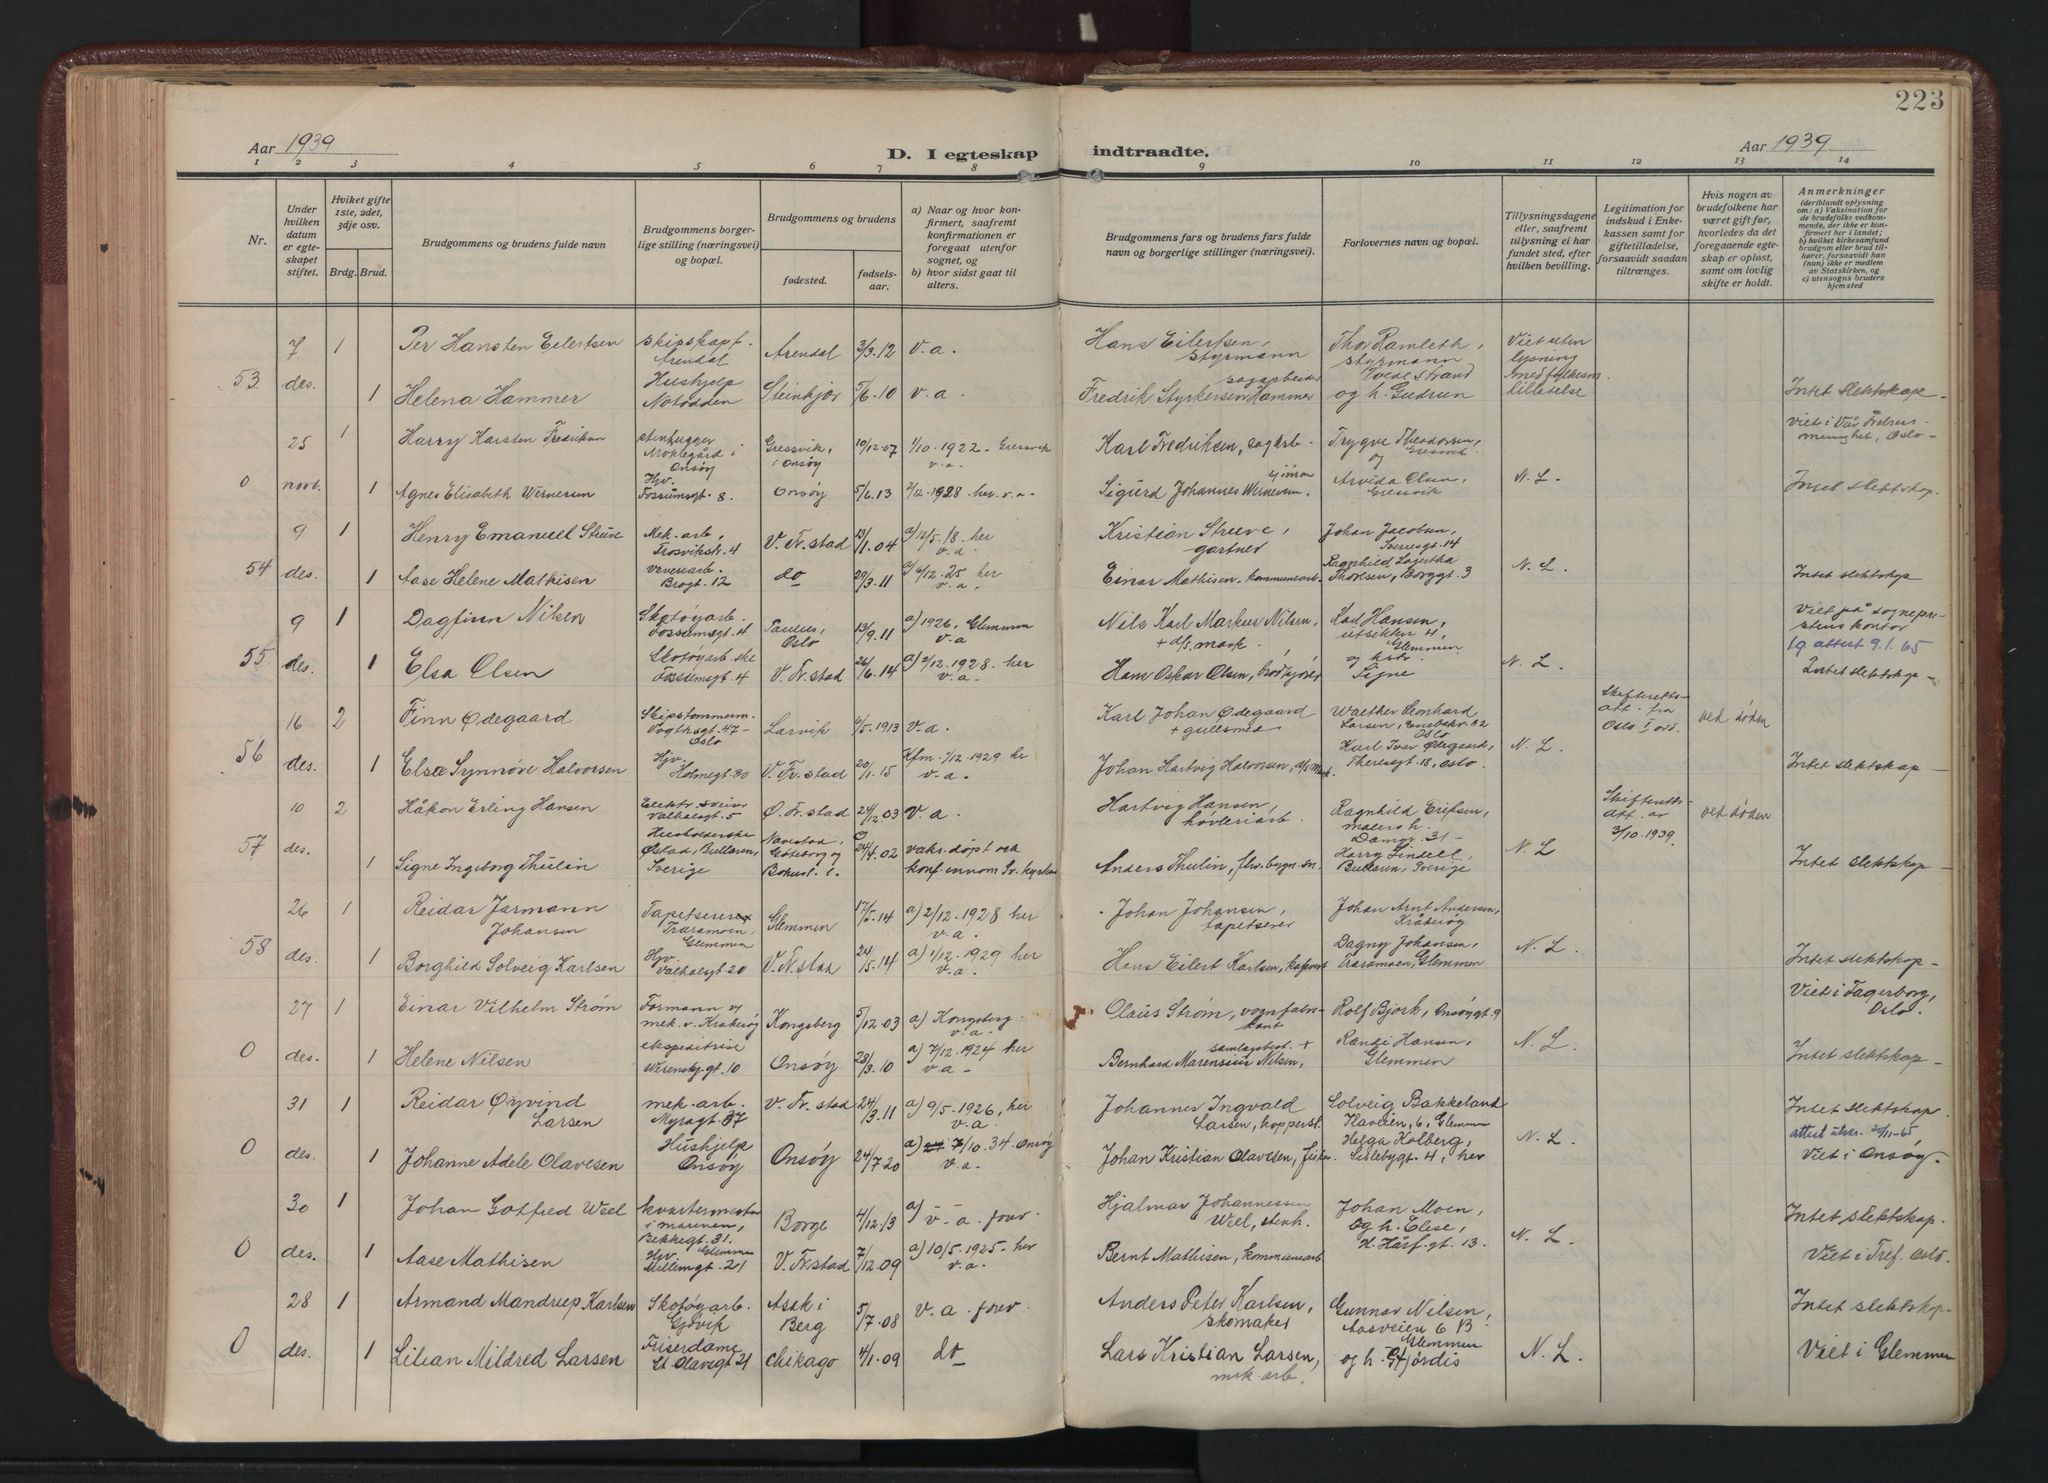 223
Aar 1939
D. I egteskap
indtraadte.
Aar 1939
1 2 3 4 5 6 7 8 9 10 11 12 13 14
Nr.
Under hvilken datum er egteskapet stiftet.
Hvilket gifte 1ste, 2det, 3dje osv.
Brdg. Brud.
Brudgommens og brudens fulde navn
Brudgommens borgerlige stilling (næringsvei) og bopæl.
Brudgommens og brudens
fødested.
fødselsaar.
a) Naar og hvor konfirmert, saafremt konfirmationen er foregaat utenfor sognet, og
b) hvor sidst gaat til alters.
Brudgommens fars og brudens fars fulde navn og borgerlige stillinger (næringsvei).
Forlovernes navn og bopæl.
Tillysningsdagene eller, saafremt tillysning ei har fundet sted, efter hvilken bevilling.
Legitimation for indskud i Enkekassen samt for giftetilladelse, forsaavidt saadan tiltrænges.
Hvis nogen av brudefolkene har været gift før, hvorledes da det foregaaende egteskap er opløst, samt om lovlig skifte er holdt.
Anmerkninger (deriblandt oplysning om: a) Vaksination for de brudefolks vedkommende, der ikke er konfirmert her i landet; b) hvilket kirkesamfund brudgom eller brud tilhører, forsaavidt han (hun) ikke er medlem av Statskirken, og c) utensogns bruders hjemsted
7 1 Per Hansten Eilertsen skipskapt. Arendal Arendal 3/3.12 v.a. Hans Eilertsen, styrmann Thor Ramleth, styrmann Tvedestrand Viet uten lysning
53 des. 1 Helena Hammer Hushjelp Notodden Steinkjer 5/6.10 v.a. Fredrik Styrkersen Hammer sagarbeider og h. Gudrun tillatelse Intet slektskap
25 1 Harry Karsten Fredriksen stenhugger Moklegård i Onsøy Gressvik, i Onsøy 10/12.07 1/10.1922. Gressvik v.a. Karl Fredriksen, sagarb. Trygve Theodorsen, og Gressvik Viet i Vår Frelsers menighet, Oslo
0 novb. 1 Agnes Elisabeth Wernersen Hjv. Fossumsgt. 8. Onsøy 5/6.13 2/12.1928. her. v.a. Sigurd Johannes Wernersen, sjömann Arvida Olsen, Gressvik N. L. Intet slektskap.
9 1 Henry Emanuel Strüve Mek. arb, Trosvikstr. 4 V. Fr.stad 13/1.04 a) 12/5.18. her v.a. Kristian Streeve, gartner Johan Jacobsen, Sverresgt. 14
54 des. 1 Aase Helene Mathisen Veverarb. Brogt. 12 do 29/3.11 a) 6/12.25 her v.a. Einar Mathisen. kommunearb. Ragnhild Lagertha Thorlsen, Borggt. 3 N. L. Intet slektskap
9 1 Dagfinn Nilsen Skotøyarb. Fossumsgt. 4 Paulus, Oslo 13/9.11 a) 1926, Glemmen v.a Nils Karl Markus Nilsen, + d/s. mask. Karl Hansen, utsikten 4, Glemmen Viet på sogneprestens kontor
l.q attest 9.1.65
55 des. 1 Elsa Olsen Skotøyarb.ske Fossumsgt. 4 V. Fr.stad 26/6.14 a) 2/12.1928. her v.a. Hans Oskar Olsen, brödkjörer og hstr. Signe N. L. Intet slektskap
16 2 Finn Ødegaard Skipstømmerm. Vogtksgt. 47 Oslo Larvik 6/5.1913 v.a. Karl Johan Ødegaard + gullsmed Walther Leonhard Larsen, Enebakv. 32 Oslo Skifteretts-att. fra Oslo I ord. ved døden
56 des. 1 Else Synnøve Halvorsen Hjv. Holmegt 30 V. Fr.stad 20/1.15 Kfm. 1/12.1929 her v.a. Johan Hartvig Halvorsen, d/s. Mask. Karl Ivar Ødegaard, Theresgt. 18, Oslo. N. L. Intet slektskap
10 2 Håkon Erling Hansen Elektr. sveiser Valhalsgt. 5 Ø. Fr.stad 24/12.03 v.a. Hartvig Hansen, høvleriarb. Ragnhild Eriksen, malers h. Damgt. 31 Skifteretts-att. av 3/10.1939. ved døden
57 des. 1 Signe Ingeborg Thulin Husholderske Østad, Bullaren, Sverige Naverstad, Göteborg og Bohusl. l. 24/4.02 vaks. døpt och konf. innom Sv. kyrkan Anders Thulin, Harry Lindell, Bullaren, Sverige N. L Intet slektskap
26 1 Reidar Jarmann Johansen Tapetserer Traramoen, Glemmen Glemmen 17/5.14 a) 2/12.1928 her v.a. Johan Johansen, tapetserer Johan Arnt Andersen, Kråkerøy
58 des. 1 Borghild Solveig Karlsen Hjv. Valhalsgt 20 V. Fr.stad 24/5.14 a) 1/12.1929 her v.a. Hans Eilert Karlsen, Dagny Johansen, Traramoen, Glemmen N. L. Intet slektskap
27 1 Einar Vilhelm Strøm Formann v mek. v. Kråkerøy Kongsberg 5/12.03 a) Kongsberg. v.a. Olaus Strøm, vognfabrikant Rolf Bjørk, Onsøygt. 9 Viet i Fagerborg, Oslo.
0 des. 1 Helene Nilsen ekspeditrise Werenskj.gt. 10 Onsøy 28/3.10 a) 7/12.1924 her v.a. Bernhard Marensius Nilsen, samlagsbest. + Randi Hansen, Glemmen N. L. Intet slektskap
31 1 Reidar Øyvind Larsen mek. arb. Myragt. 37 V. Fr.stad 24/3.11 a) 9/5.1926, her v.a. Johannes Ingvald Larsen, kopperst. Solveig Bakkeland Haveien, 6, Glemmen Intet slektskap.
attest utskr. 20/11-65
0 des. 1 Johanne Adele Olavesen Hushjelp Onsøy Onsøy 24/7.20 a) 7/10.34. Onsøy v.a. Johan Kristian Olavesen, fisker. Helga Kolberg, Lislebygt. 4, her N. L. Viet i Onsøy.
30 1 Johan Gotfred Weel kvartermester i marinen, Bekkegt. 31. Glemmen Borge 4/12.13 a) v.a. forr. Hjalmar Johannessen Weel, stenh. Johan Moen, og h. Else, H. Hårf.gt. 13. Intet slektskap.
0 des. 1 Aase Mathisen Hjv. Millemgt. 21 V. Fr.stad 7/12.09 a) 10/5.1925. her v.a. Bernt Mathisen, kommunearb N. L. Viet i Tref. Oslo.
28 1 Armand Mandrup Karlsen Skotøyarb. Gjøvik Asak i Berg 5/7.08 v.a. forr. Anders Peter Karlsen, skomaker Gunnar Nilsen, Aasveien 6 B Glemmen Intet slektskap.
0 des. 1 Lilian Mildred Larsen Friserdame St. Olavsgt 21 Chikago 4/1.09 do Lars Kristian Larsen, mek. arb. og h. Hjördis N. L. Viet i Glemmen